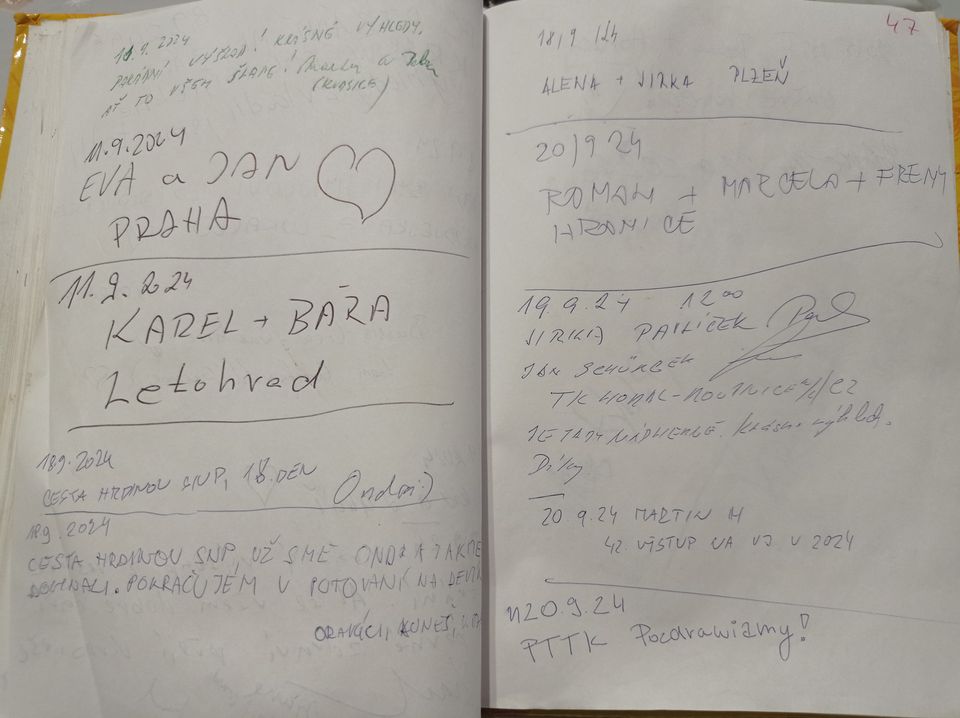 11.9.2024
POŘÁDNÝ VÝŠLAP! KRÁSNÉ VÝHLEDY.
AŤ TO VŠEM ŠLAPE!
11.9.2024
EVA a JAN
PRAHA
11.9.2024
KAREL + BÁŘA
Letohrad
18.9.2024
CESTA HRDINOV SNP, 18. DEN Ondrej:)
18.9.2024
CESTA HRDINOV SNP, UŽ SME ONDRA TAKMER
DOHNALI. POKRAČUJEM V PUTOVANÍ NA DEVÍN
ORAVCI, KUNEŠ,
47
18/9 124
ALENA + JIRKA PLZEŇ
20/9 24
ROMAN + MARCELA + FRENY
HRANICE
19.9.24 12 00
JIRKA PAVLÍČEK
JAN
TK
JE TADY NÁDHERNĚ. Krásné výhledy.
Díky
20.9.24 MARTIN H
42. VÝSTUP NA VJ V 2024
20.9.24
PTTK Pozdrawiamy!